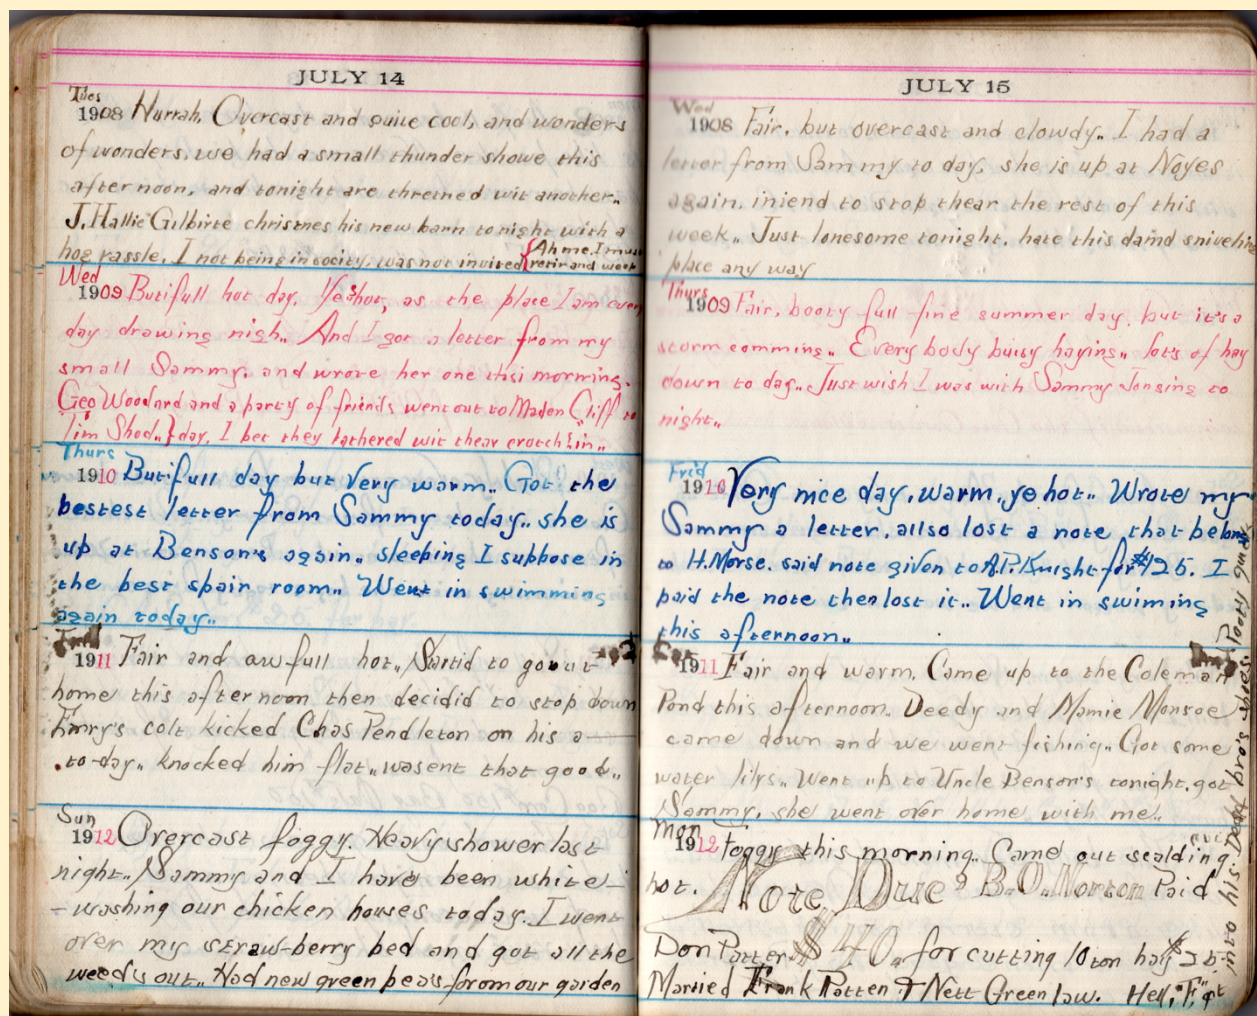 JULY 14
Tues
1908 Hurrah, Overcast and quite cool, and wonders
of wonders, we had a small thunder showe this
afternoon, and tonight are thretned wit another..
J. Hallie Gilbirte christnes his new barn to night with a
hog rassle, I not being in socity, was not invited { Ah me, I must
retir and weep
Wed
1909 Butifull hot day, Yes hot, as the place I am every
day drawing nigh.. And I got a letter from my
small Sammy, and wrote her one thsi morning.
Geo Woodard and a party of friends went out to Maden Cliff to
Tim Shod.. } day, I bet they lathered wit thear crotch in..
Thurs
1910 Butifull day but Very warm.. Got the
bestest letter from Sammy today.. she is
up at Benson's again.. sleeping I suppose in
the best spair room.. Went in swimming
again today..
1911 Fair and awfull hot., Startid to go out
home this afternoon then decidid to stop down
Emry's colt kicked Chas Pendleton on his a——
to-day.. knocked him flat.. wasent that good..
Sun
1912 Overcast foggy. Heavy shower last
night.. Sammy and I have been white-
-washing our chicken houses today. I went
over my straw-berry bed and got all the
weeds out.. Had new green peas forom our garden
JULY 15
Wed
1908 Fair, but overcast and clowdy.. I had a
letter from Sammy to day, she is up at Noyes
again, intend to stop thear the rest of this
week.. Just lonesome tonight, hate this damd sniveling
place any way
Thurs
1909 Fair, booty full fine summer day, but it's a
storm comming.. Every body buisy haying.. lots of hay
down to day.. Just wish I was with Sammy Jonsing to
night..
Frid
1910 Very nice day, warm, ye hot.. Wrote my
Sammy a letter, allso lost a note that belong
to H. Morse. said note given to A.P. Knight for $125. I
paid the note then lost it.. Went in swiming
this afternoon..
1911 Fair and warm, Came up to the Coleman
Pond this afternoon. Deedy and Mamie Monroe
came down and we went fishing.. Got some
water lilys.. Went up to Uncle Benson's tonight, got
Sammy, she went over home with me..
Mon
1912 Foggy this morning.. Came out scalding
hot. Note Due? B.O. Norton Paid
Don Patten $40.. for cutting 10 ton hay $25
Married Frank Patten & Nett Greenlaw. Hell,